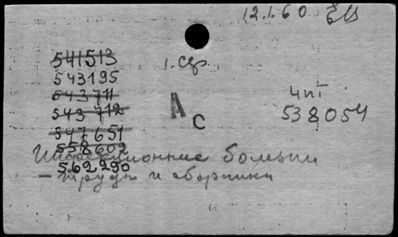 12.1.60.
541513
543195
543711
543712
547651
558602
562290
1. Сер.
A
C
чп1
538054
Инфекционные болезни
- труды и сборники